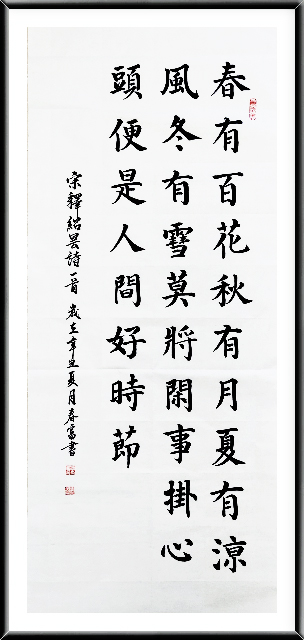 春有百花秋有月夏有涼
風冬有雪莫將閑事掛心
頭便是人間好時節
宋釋紹曇詩一首 歲在辛丑夏月春富書